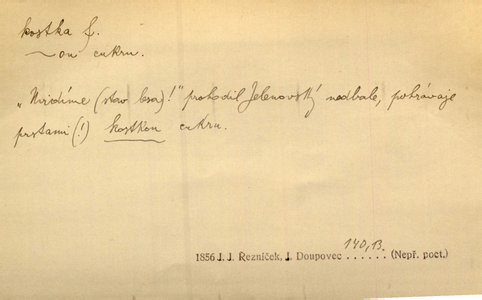 kostka f.
~ou cukru.
„Uvidíme (stav lesa)!" prohodil Jelenovský nedbale, pohrávaje
prstami (!) kostkou cukru.
140, B.
1856 J. J. Řezníček, J. Doupovec . . . . . . (Nepř. poct.)